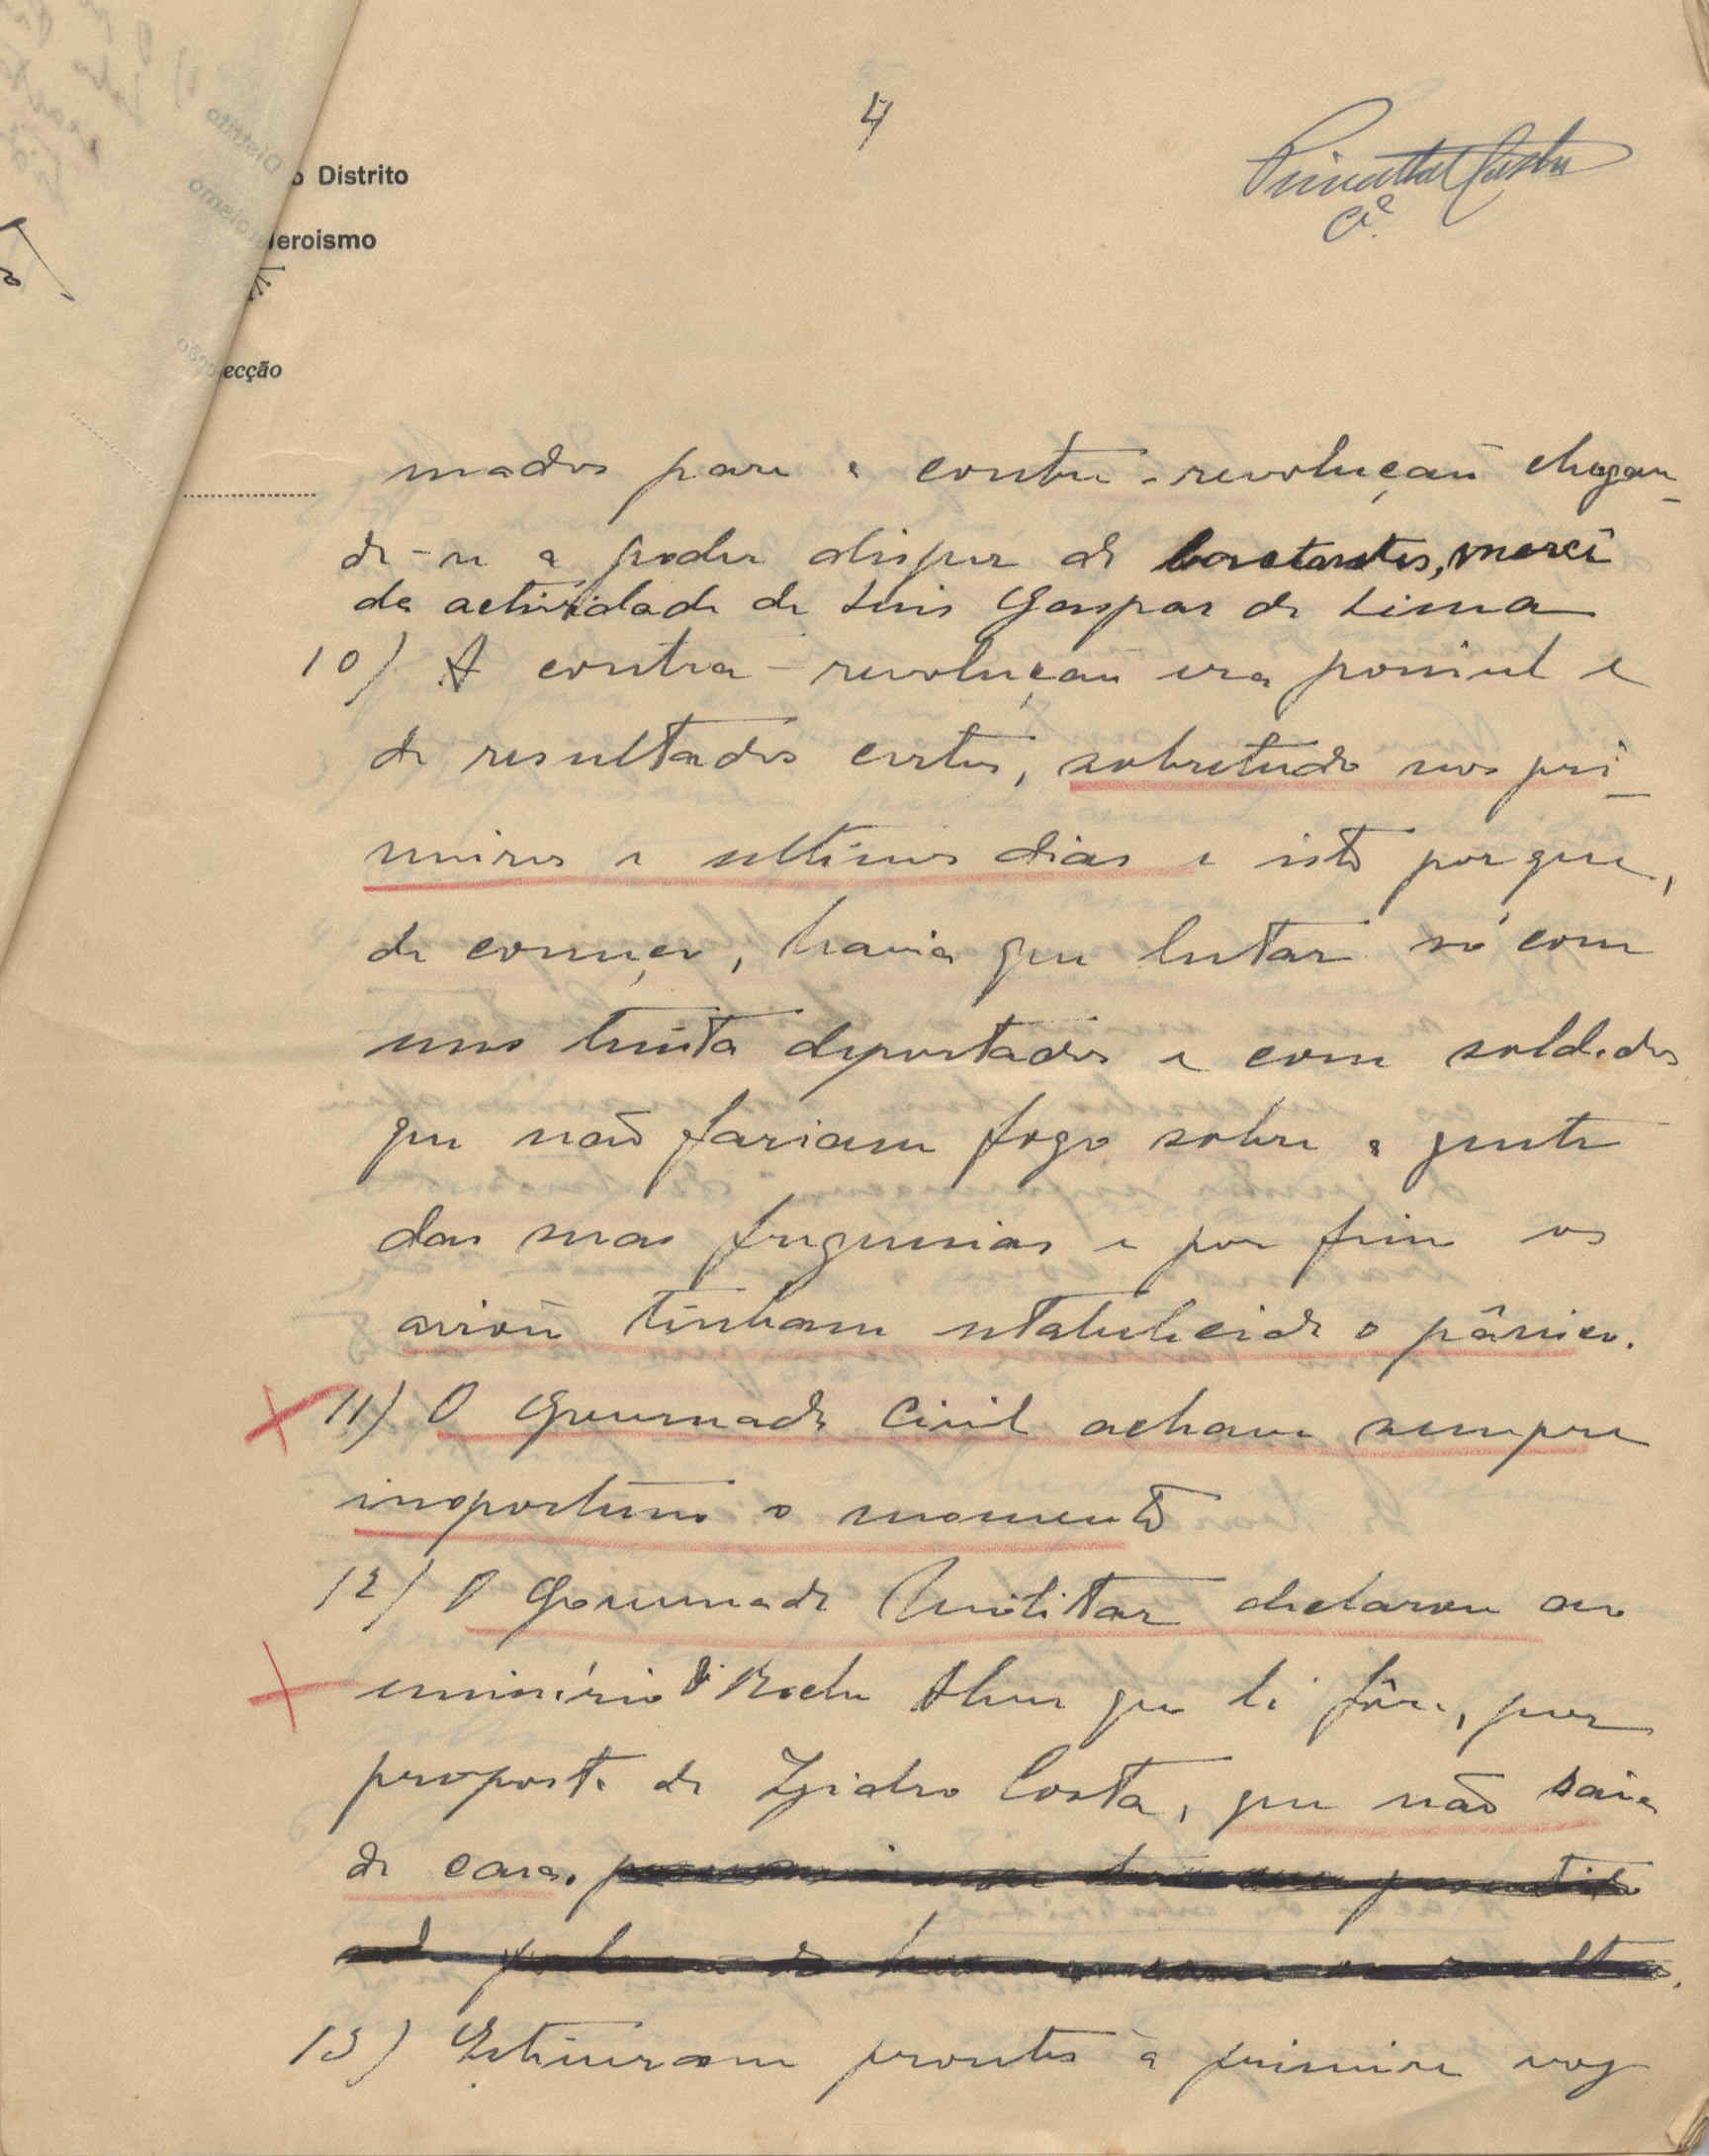 4
Pimentel Costa
Cº
o Distrito
eroismo
ecção
mados para a contra-revolução chegan-
do-se a poder dispor de bastantes, mercê
da actividade de Luis Gaspar de Lima
10) A contra-revolução era possivel e
de resultados certos, sobretudo nos pri-
meiros e ultimos dias e isto porque,
de começo, havia que lutar só com
uns trinta deportados e com soldados
que não fariam fogo sobre a gente
das suas freguesias e por fim os
aviões tinham estabelecido o pânico.
11) O Governador Civil achava sempre
inoportuno o momento
12) O Governador Militar declarou ao
emissário Rocha Alves que lá fôra, por
proposta de Izidro Costa, que não saía
de casa.
13) Estiveram prontos à primeira voz